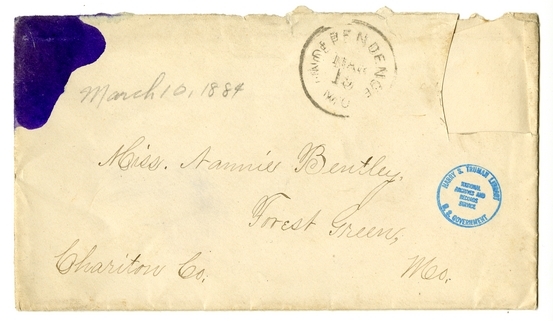 March 10, 1884
INDEPENDENCE
MAR
MO.
Miss. Nannie Bentley,
Forest Green,
Chariton Co. Mo.
HARRY S. TRUMAN LIBRARY
NATIONAL
ARCHIVES AND
RECORDS
SERVICE
U.S. GOVERNMENT